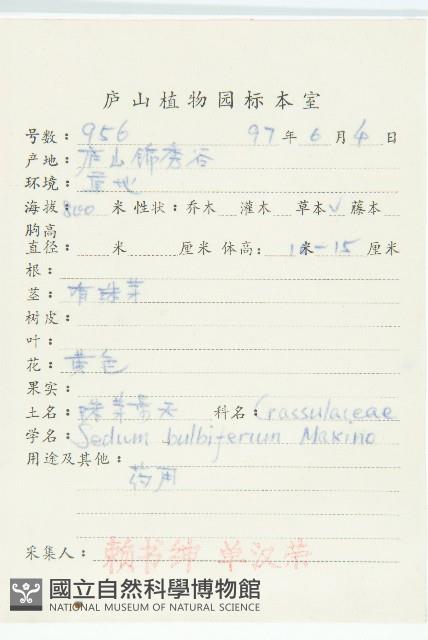 庐山植物园标本室
号数：956 97年6月4日
产地：庐山锦秀谷
环境：草地
海拔：800米 性状：乔木 灌木 草本√ 藤本
胸高
直径： 米 厘米 体高：10-15厘米
根：
茎：有珠芽
树皮：
叶：
花：黄色
果实：
土名：珠芽景天 科名：Crassulaceae
学名：Sedum bulbiferum Makino
用途及其他：
药用
采集人：赖书绅 单汉荣
國立自然科學博物館
NATIONAL MUSEUM OF NATURAL SCIENCE